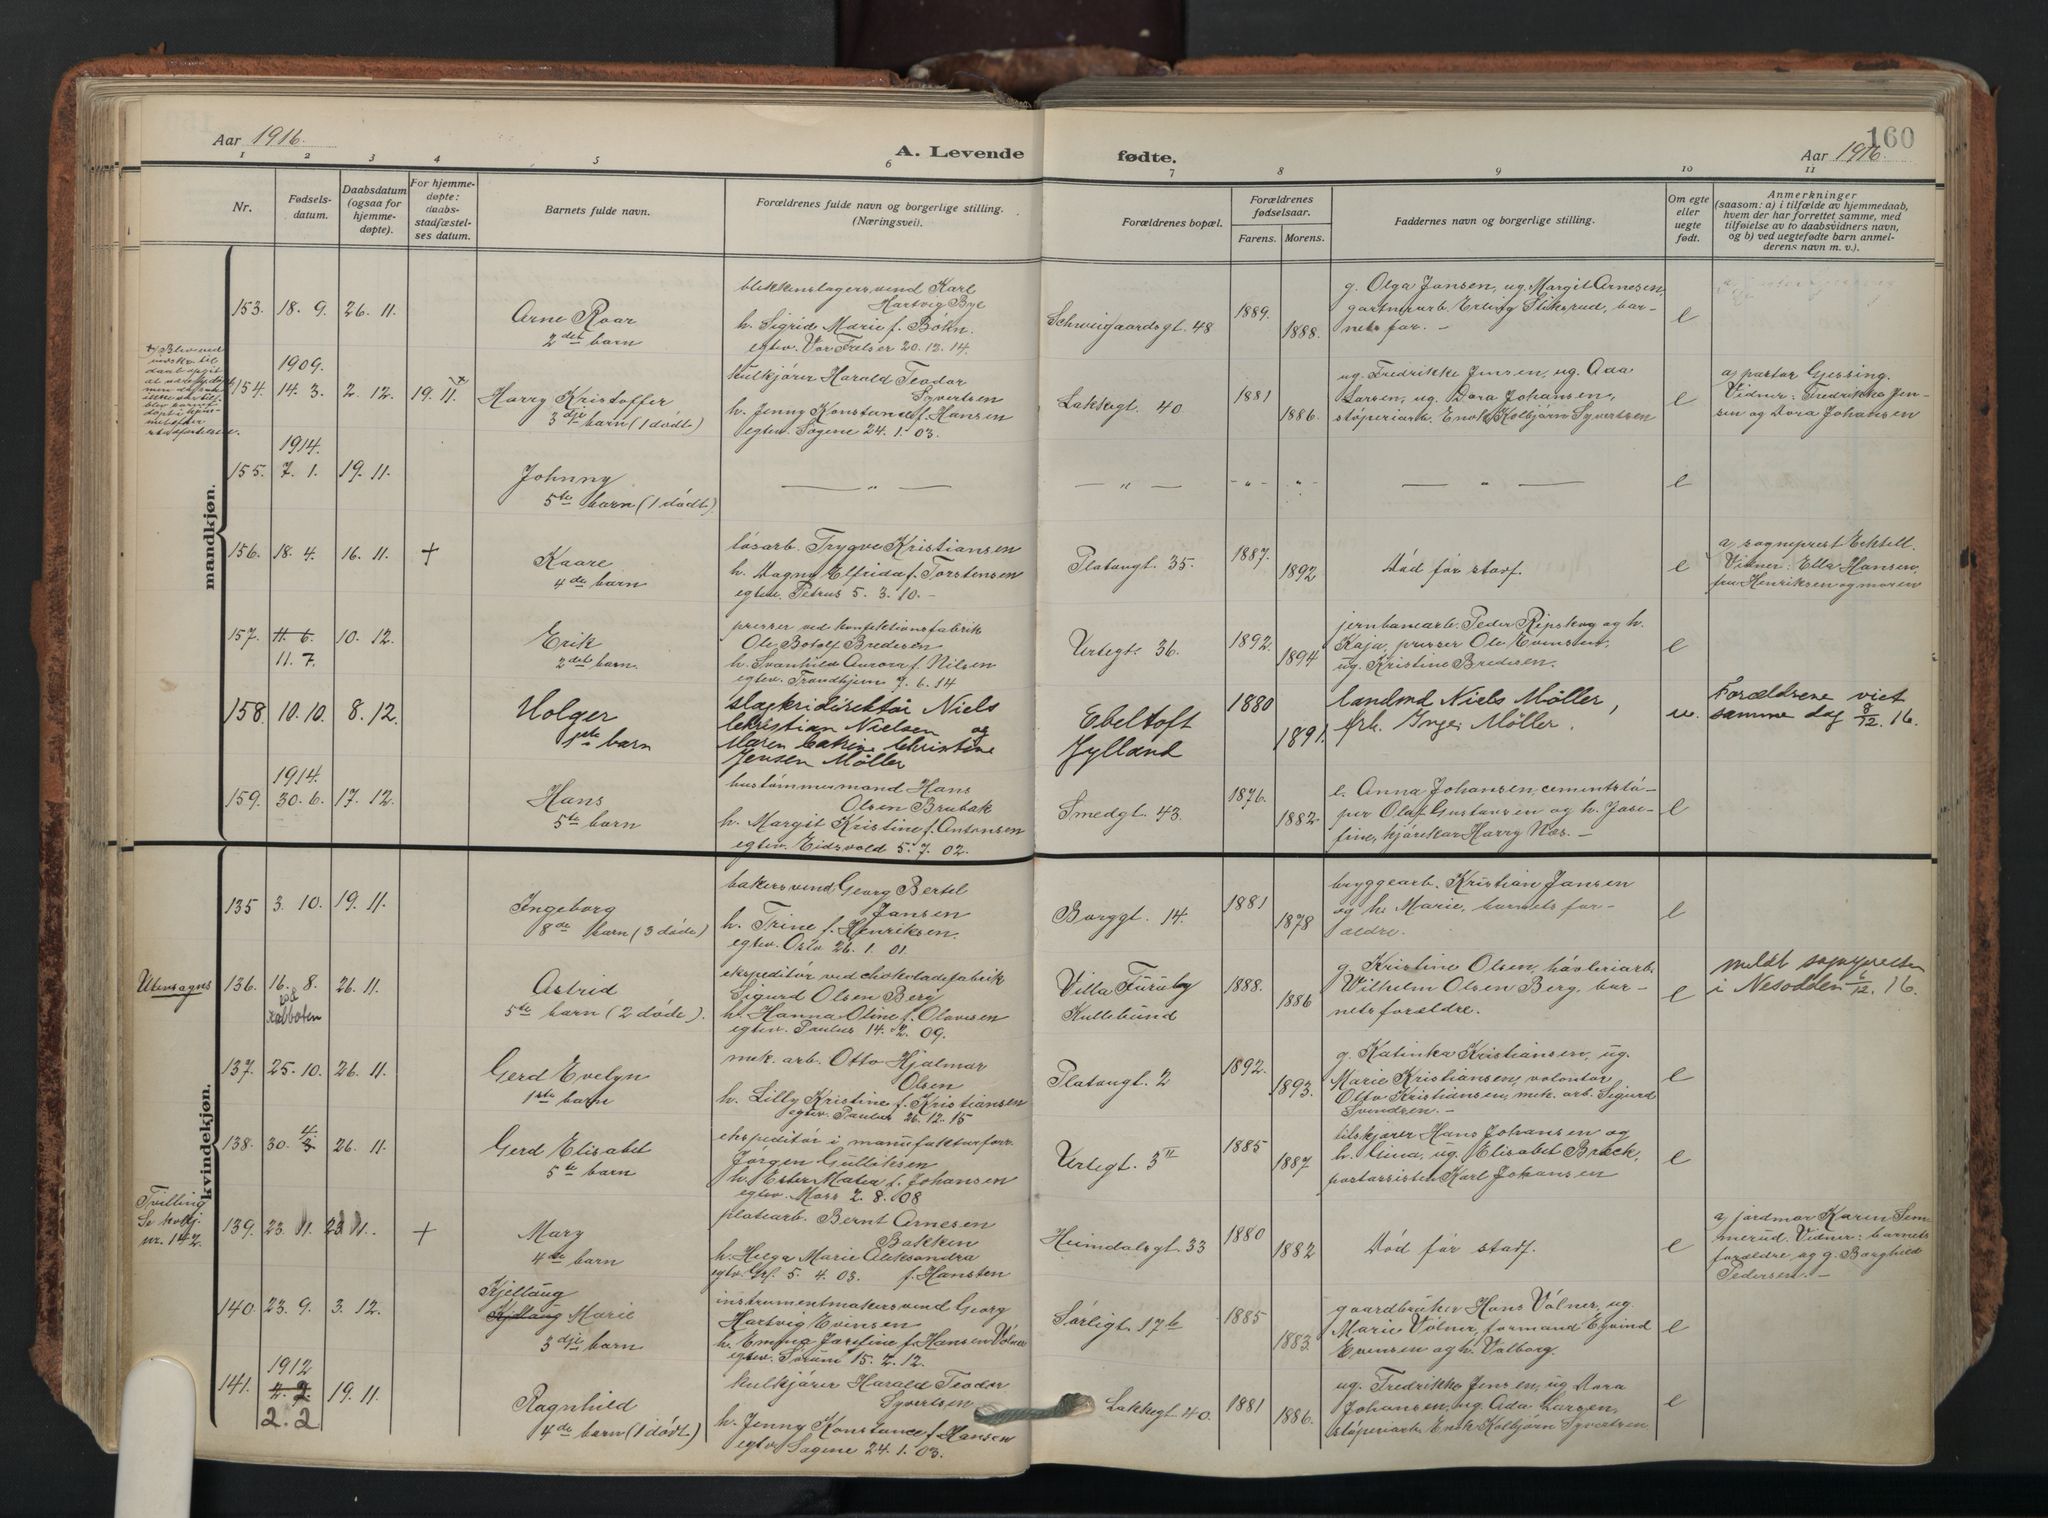 Aar 1916.
A. Levende fødte.
160
Aar 1916.
1 2 3 4 5 6 7 8 9 10 11
Nr.
Fødsels-
datum.
Daabsdatum
(ogsaa for
hjemme-
døpte).
For hjemme-
døpte:
daabs-
stadfæstel-
ses datum.
Barnets fulde navn.
Forældrenes fulde navn og borgerlige stilling.
(Næringsvei).
Forældrenes bopæl.
Forældrenes
fødselsaar.
Farens. Morens.
Faddernes navn og borgerlige stilling.
Om egte
eller
uegte
født.
Anmerkninger
(saasom: a) i tilfælde av hjemmedaab,
hvem der har forrettet samme, med
tilføielse av to daabsvidners navn,
og b) ved uegtefødte barn anmel-
derens navn m. v.).
mandkjøn.
153. 18. 9. 26. 11.
Arne Roar
2det barn
blikkenslagersvend Karl
Hartvig Bye
h. Sigrid Marie f. Bökn.
egtev. Vor Frelser 20. 12. 14.
Schweigaardsgt. 48
1889. 1888.
g. Olga Jansen, ug. Margit Arnesen,
gartnerarb. Erling Sliksrud, bar-
nets far. –
e
1909.
154. 14. 3. 2. 12. 19. 11
Harry Kristoffer
3dje barn (1 dødt)
kulkjører Harald Teodor
Syvertsen
h. Jenny Konstance f. Hansen
egtev. Sagene 24. 1. 03.
Lakkegt. 40.
1881 1886.
ug. Fredrikke Jensen, ug. Ada
Larsen, ug. Dora Johansen,
støperiarb. Enok Kolbjørn Syvertsen
e
a, pastor Gjessing.
Vidner: Fredrikke Jen-
sen og Dora Johansen
1914.
155. 7. 1. 19. 11.
Johnny
5te barn (1 dødt).
— „ — — „ — - „ - - „ - — „ —
e
156. 18. 4. 16. 11. +
Kaare
4de barn
løsarb. Trygve Kristiansen
h. Dagny Elfrida f. Torstensen
egtev. Petrus 5. 3. 10. –
Platougt. 35.
1887. 1892
Död før stadf.
e
Vidner: Ella Hansen,
fru Henriksen og moren
157. 11. 6. 10. 12.
11. 7.
Erik
2det barn.
presser ved konfektionsfabrik
Ole Botolf Bredesen
h. Svanhild Aurora f. Nilsen
egtev. Trondhjem 7. 6. 14
Urtegt. 36.
1892. 1894
jernbanearb. Peder Ripskog og h.
Kaja, presser Ole Evensen,
ug. Kristine Bredesen.
e
158. 10. 10. 8. 12.
Holger
1ste barn
Niels
Christian Nielsen og
Maren Catrine Christine
Jensen Møller
Ebeltoft
Jylland
1880 1891.
landmd Niels Møller,
frk. Inger Møller.
u.
Forældrene viet
samme dag 8/12. 16.
1914.
159. 30. 6. 17. 12.
Hans
5te barn
hustømmermand Hans
Olsen Brubak
h. Margit Kristine f. Antonsen
egtev. Eidsvold 5. 7. 02.
Smedgt. 43.
1876. 1882
e. Anna Johansen, cementstø-
per Olaf Gustavsen og h. Jose-
fine, kjørekar Harry Næs. –
e
kvindekjøn.
135 3. 10. 19. 11.
Ingeborg
8de barn (3 døde)
bakersvend Georg Bertel
Jansen
h. Trine f. Henriksen.
egtev. Oslo 26. 1. 01.
Borggt. 14.
1881 1878
bryggearb. Kristian Jansen
og h. Marie, barnets for-
ældre.
e
Utensogns
136. 16. 8. 26. 11.
Astrid
5te barn (2 døde).
ekspeditör ved chokoladefabrik
Sigurd Olsen Berg
h. Hanna Oline f. Olavesen
egtev. Paulus 14. 2. 09.
Villa Furuby
Kullebund
1888. 1886
g. Kristine Olsen, høvleriarb.
Wilhelm Olsen Berg, bar-
nets forældre.
e
meldt sognepresten
i Nesodden 6/12. 16.
137. 25. 10. 26. 11.
Gerd Evelyn
1ste barn
mek. arb. Otto Hjalmar
Olsen
h. Lilly Kristine f. Kristiansen
egtev. Paulus 26. 12. 15
Platougt. 2
1892. 1893.
g. Katinka Kristiansen, ug.
Marie Kristiansen, volontør
Otto Kristiansen, mek. arb. Sigurd
Svendsen. –
e
138. 30. 4 26. 11.
Gerd Elisabet
5te barn
ekspeditör i manufakturforr.
Jørgen Gulliksen
h. Ester Matea f. Johansen
egtev. Moss 2. 8. 08
Urtegt. 3 II
1885 1887
Hans Johansen og
h. Gina, ug. Elisabet Bræck,
postassistent Karl Johansen
e
Tvilling
Se kvkj.
nr. 142.
139. 23. 11. 23. 11. +
Mary
4de barn
platearb. Bernt Arnesen
Bakken
h. Helga Marie Aleksandra
egtev. Grf. 5. 4. 03. f. Hansten
Heimdalsgt. 33
1880 1882
Död før stadf.
e
a, jordmor Karen Sem-
merud. Vidner: barnets
forældre og g. Borghild
Pedersen. –
140. 23. 9. 3. 12.
Kjellaug
Kjellaug Marie
3dje barn
instrumentmakersvend Georg
Hartvig Evensen
h. Emma Josefine f. Hansen Völner
egtev. Sørum 15. 2. 12.
Sørligt. 17 b
1885 1883.
gaardbruker Hans Völner, ug.
Marie Völner, formand Eyvind
Evensen og h. Valborg.
e
1912
141. 2. 2. 19. 11.
2. 2
Ragnhild
4de barn (1 dødt)
kulkjører Harald Teodor
Syvertsen
h. Jenny Konstance f. Hansen
egtev. Sagene 24. 1. 03.
Lakkegt. 40.
1881 1886.
ug. Fredrikke Jensen, ug. Dora
Johansen, ug. Ada Larsen,
støperiarb. Enok Kolbjørn Syvertsen.
e